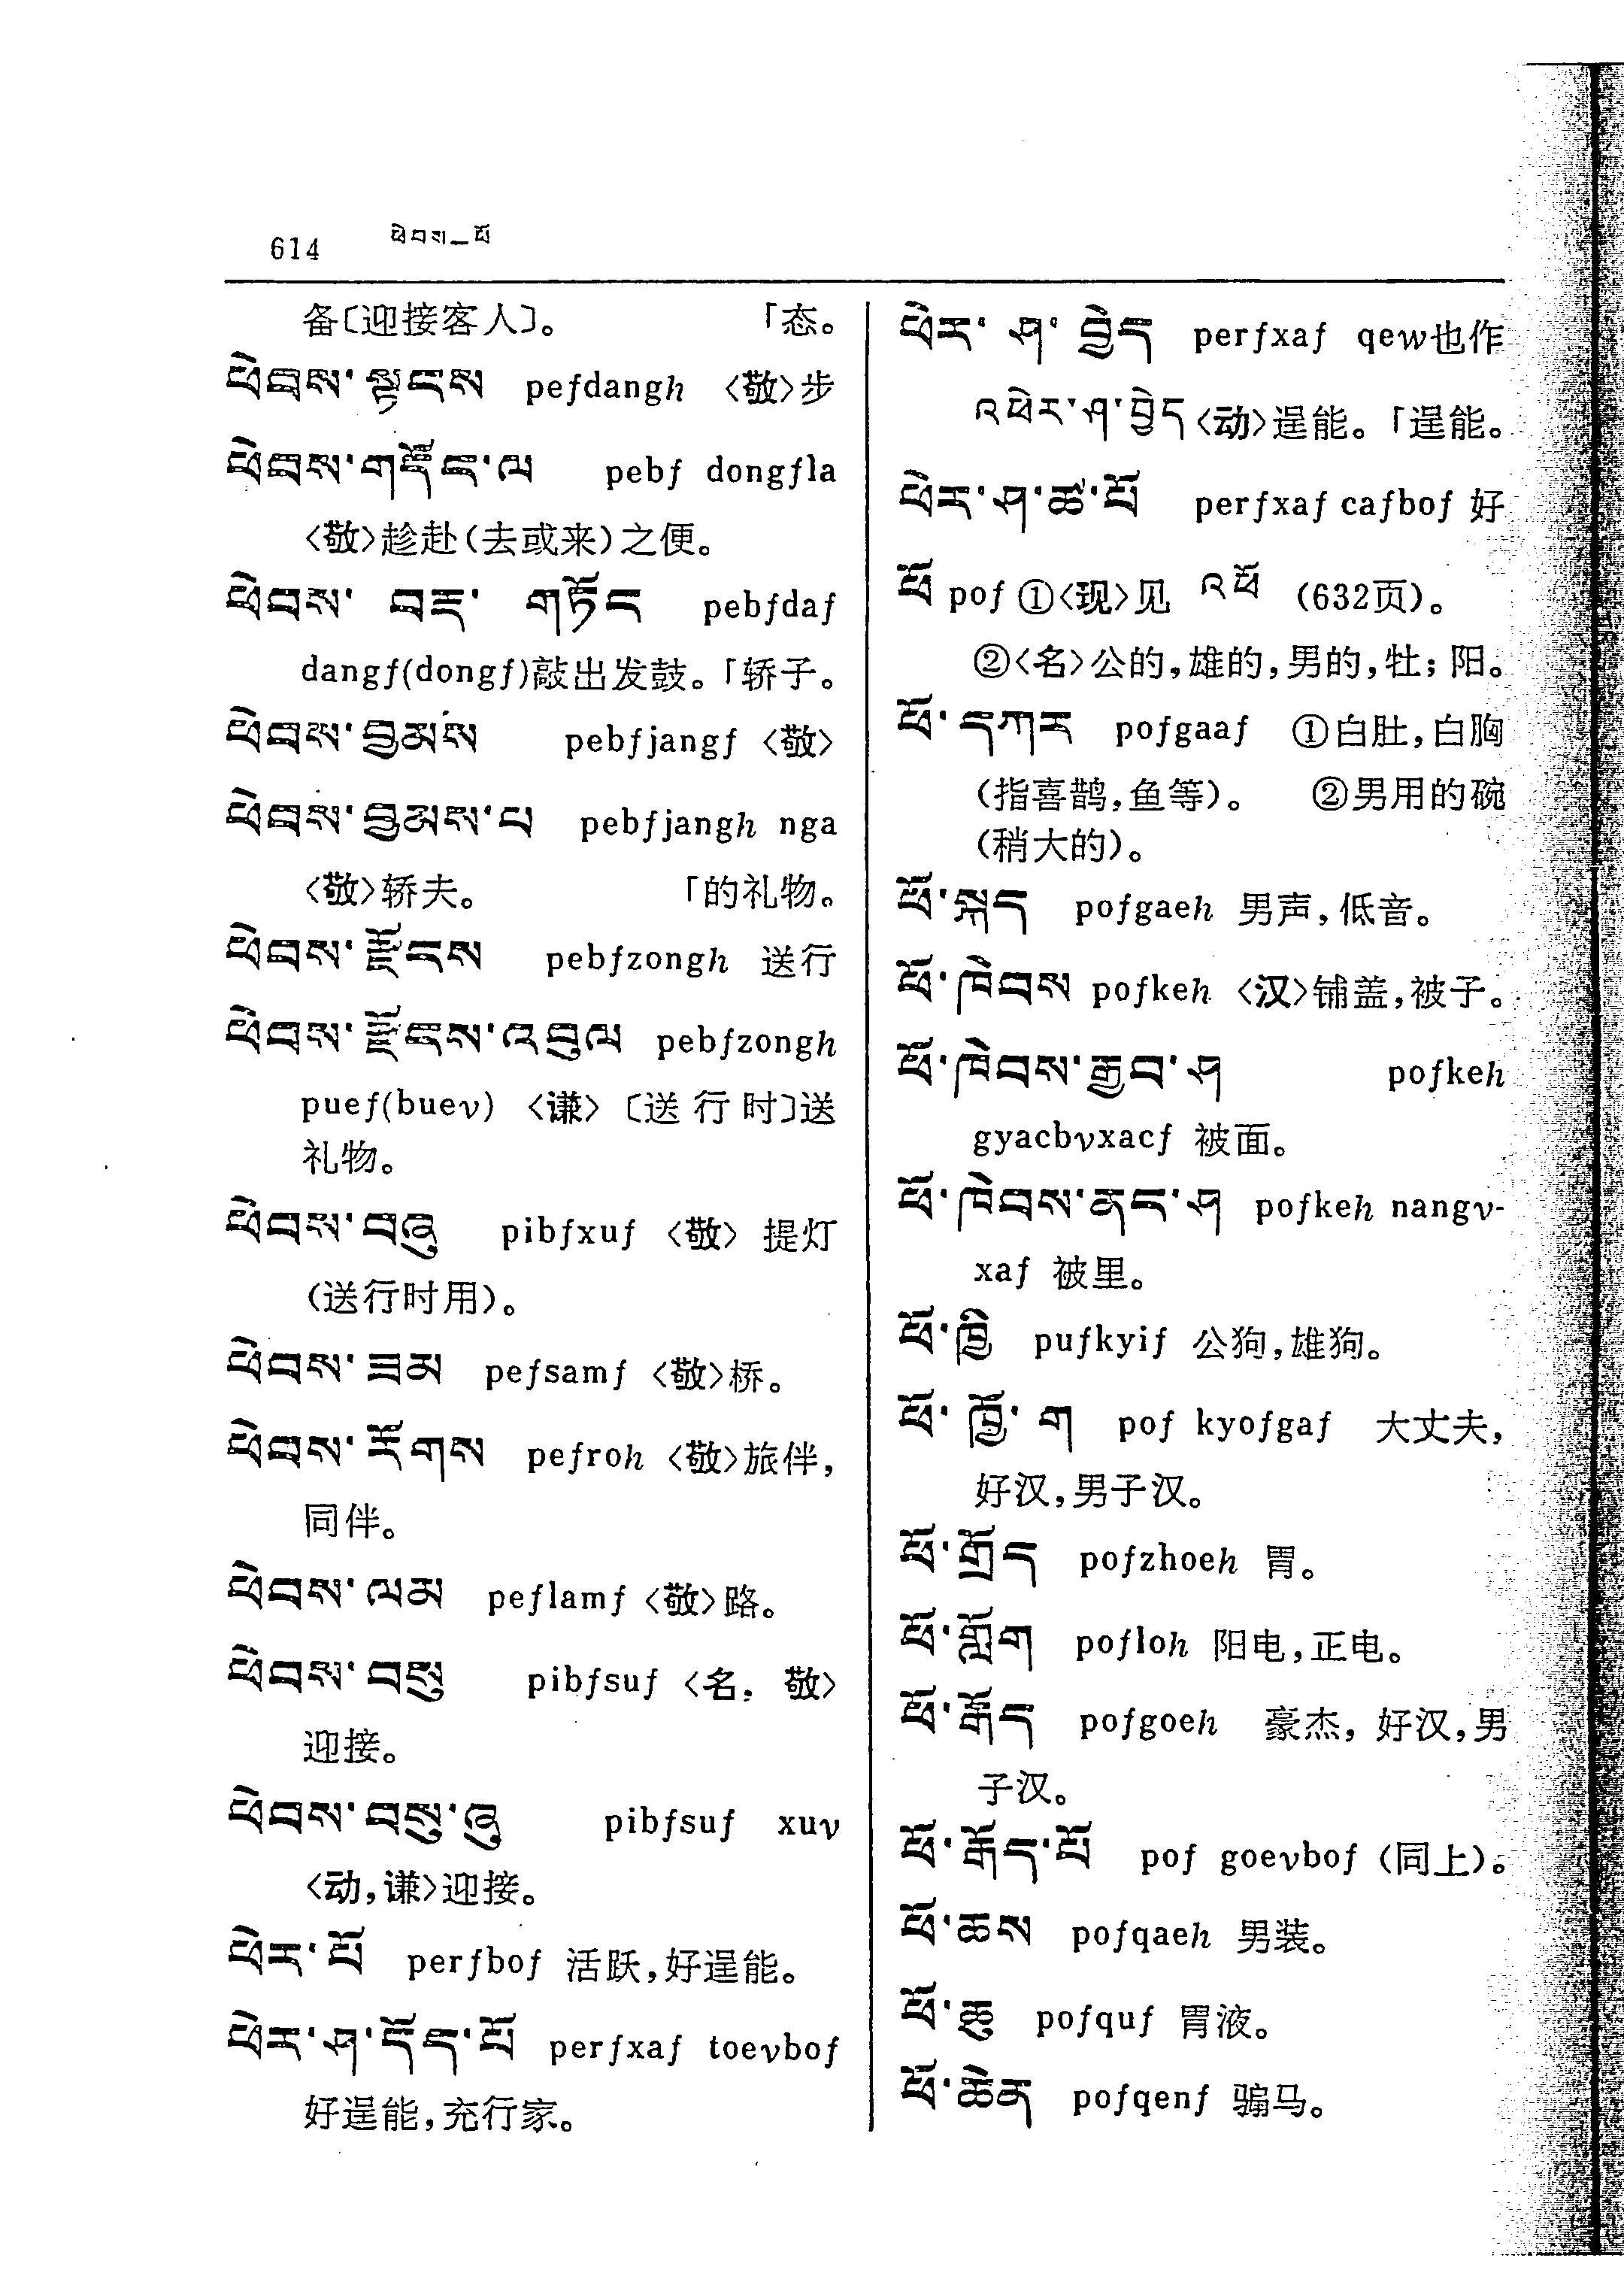 614 ཕེབས_ཕོ
备〔迎接客人〕。 「态。
ཕེབས་སྟངས pefdangh 〈敬〉步
ཕེབས་གདོང་ལ pebf dongfla
〈敬〉趁赴(去或来)之便。
ཕེབས་བརྡ་གཏོང pebfdaf
dangf(dongf)敲出发鼓。「轿子。
ཕེབས་བྱམས pebfjangf 〈敬〉
ཕེབས་བྱམས་པ pebfjangh nga
〈敬〉轿夫。 「的礼物。
ཕེབས་རྫོངས pebfzongh 送行
ཕེབས་རྫོངས་འབུལ pebfzongh
puef(buev) 〈谦〉〔送行时〕送
礼物。
ཕེབས་བཞུ pibfxuf 〈敬〉提灯
(送行时用)。
ཕེབས་ཟམ pefsamf 〈敬〉桥。
ཕེབས་རོགས pefroh 〈敬〉旅伴,
同伴。
ཕེབས་ལམ peflamf 〈敬〉路。
ཕེབས་བསུ pibfsuf 〈名, 敬〉
迎接。
ཕེབས་བསུ་ཞུ pibfsuf xuv
〈动,谦〉迎接。
ཕེར་པོ perfbof 活跃,好逞能。
ཕེར་ཤ་དོད་པོ perfxaf toevbof
好逞能,充行家。
ཕེར་ཤ་བྱེད perfxaf qew也作
འཕེར་ཤ་བྱེད〈动〉逞能。「逞能。
ཕེར་ཤ་ཚ་པོ perfxaf cafbof 好
ཕོ pof ①〈现〉见 འཕོ (632页)。
②〈名〉公的,雄的,男的,牡; 阳。
ཕོ་དཀར pofgaaf ①白肚,白胸
(指喜鹊,鱼等)。 ②男用的碗
(稍大的)。
ཕོ་སྐད pofgaeh 男声,低音。
ཕོ་ཁེབས pofkeh 〈汉〉铺盖,被子。
ཕོ་ཁེབས་རྒྱབ་ཤ pofkeh
gyacbvxacf 被面。
ཕོ་ཁེབས་ནང་ཤ pofkeh nangv-
xaf 被里。
ཕོ་ཁྱི pufkyif 公狗,雄狗。
ཕོ་ཁྱོ་ག pof kyofgaf 大丈夫,
好汉,男子汉。
ཕོ་གྲོད pofzhoeh 胃。
ཕོ་གློག pofloh 阳电,正电。
ཕོ་རྒོད pofgoeh 豪杰, 好汉,男
子汉。
ཕོ་རྒོད་པོ pof goevbof (同上)。
ཕོ་ཆས pofqaeh 男装。
ཕོ་ཆུ pofquf 胃液。
ཕོ་ཆེན pofqenf 骟马。